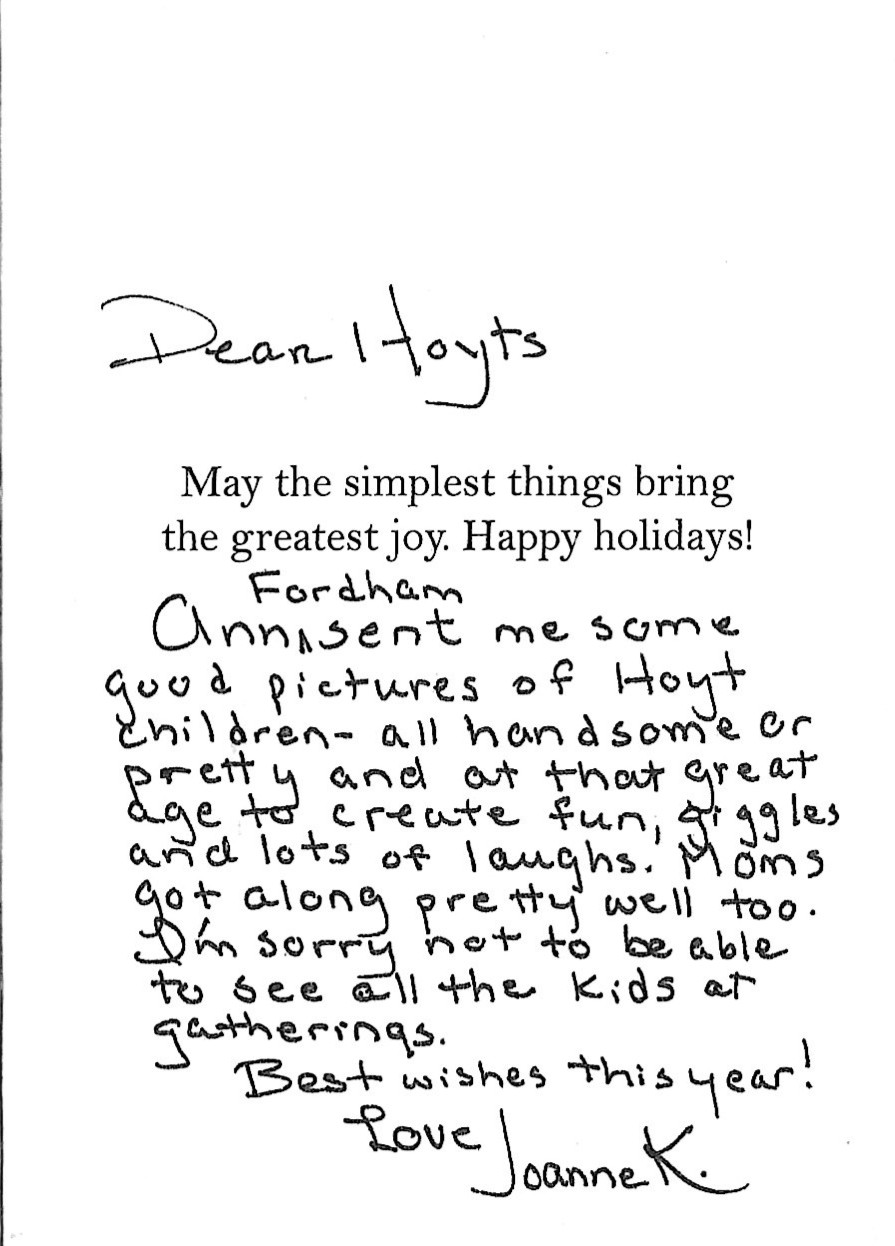 Dear Hoyts
May the simplest things bring
the greatest joy. Happy holidays!
Fordham
Ann sent me some
good pictures of Hoyt
children- all handsome or
pretty and at that great
age to create fun, giggles
and lots of laughs. Moms
got along pretty well too.
I'm sorry not to be able
to see all the kids at
gatherings.
Best wishes this year!
Love
Joanne K.